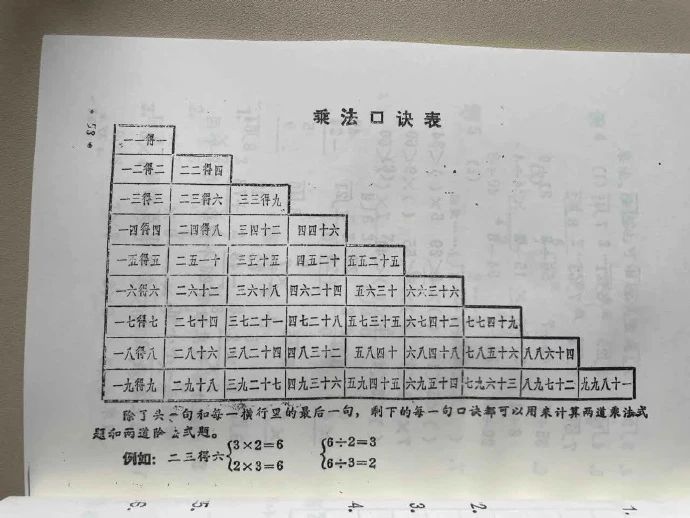 乘法口诀表
一一得一
一二得二 二二得四
一三得三 二三得六 三三得九
一四得四 二四得八 三四十二 四四十六
一五得五 二五一十 三五十五 四五二十 五五二十五
一六得六 二六十二 三六十八 四六二十四 五六三十 六六三十六
一七得七 二七十四 三七二十一 四七二十八 五七三十五 六七四十二 七七四十九
一八得八 二八十六 三八二十四 四八三十二 五八四十 六八四十八 七八五十六 八八六十四
一九得九 二九十八 三九二十七 四九三十六 五九四十五 六九五十四 七九六十三 八九七十二 九九八十一
除了头一句和每一横行里的最后一句，剩下的每一句口诀都可以用来计算两道乘法式
题和两道除法式题。
例如：二三得六 3×2=6 6÷2=3
2×3=6 6÷3=2
6. 5. 4. 3. 2. 1.